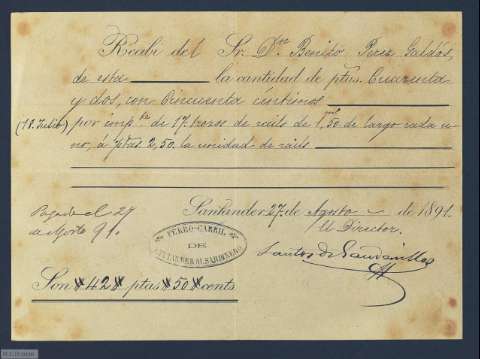 Recibí del Sr. Dn. Benito Perez Galdós,
de esta la cantidad de ptas. Cuarenta
y dos, con Cincuenta céntimos
(18. Julio) por impte. de 17. trozos de rails de 1,50 de largo cada u-
no, á ptas. 2,50. la unidad de rails
Santander 27. de Agosto de 1891.
El Director.
Pagado el 27
de Agosto 91.
FERRO-CARRIL
DE
SANTANDER AL SARDINERO
Son 42 ptas 50 cents